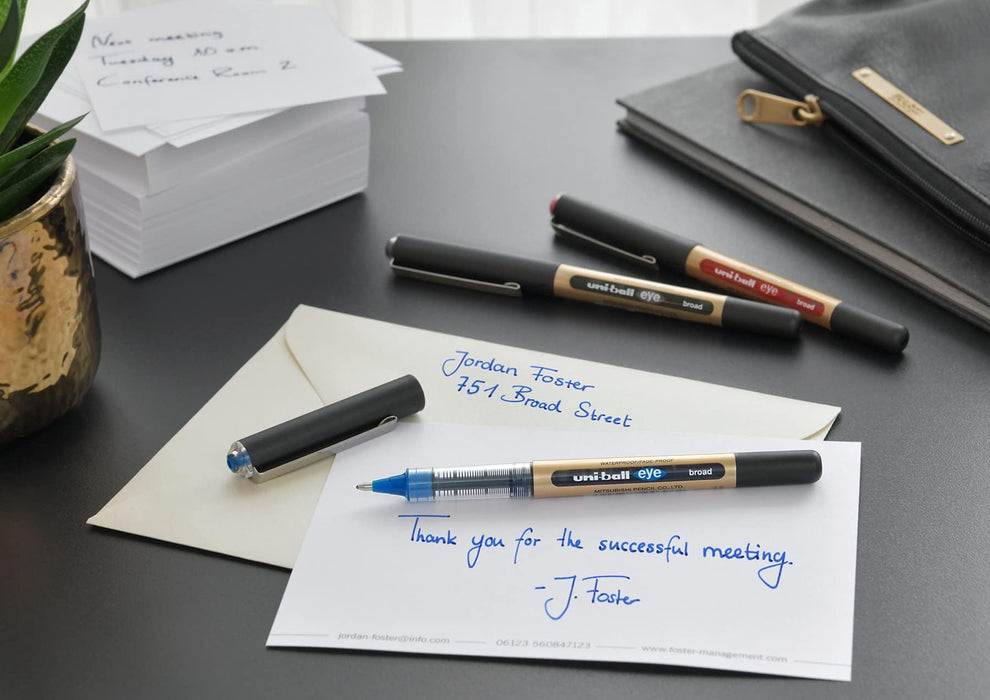 New meeting
Tuesday 10 am
Conference Room 2
uni-ball eye broad
uni-ball eye broad
Jordan Foster
751 Broad Street
WATERPROOF/FADE-PROOF
uni-ball eye broad
MITSUBISHI PENCIL CO., LTD.
Thank you for the successful meeting.
- J. Foster
jordan-foster@info.com 06123 560847123 www.foster-management.com